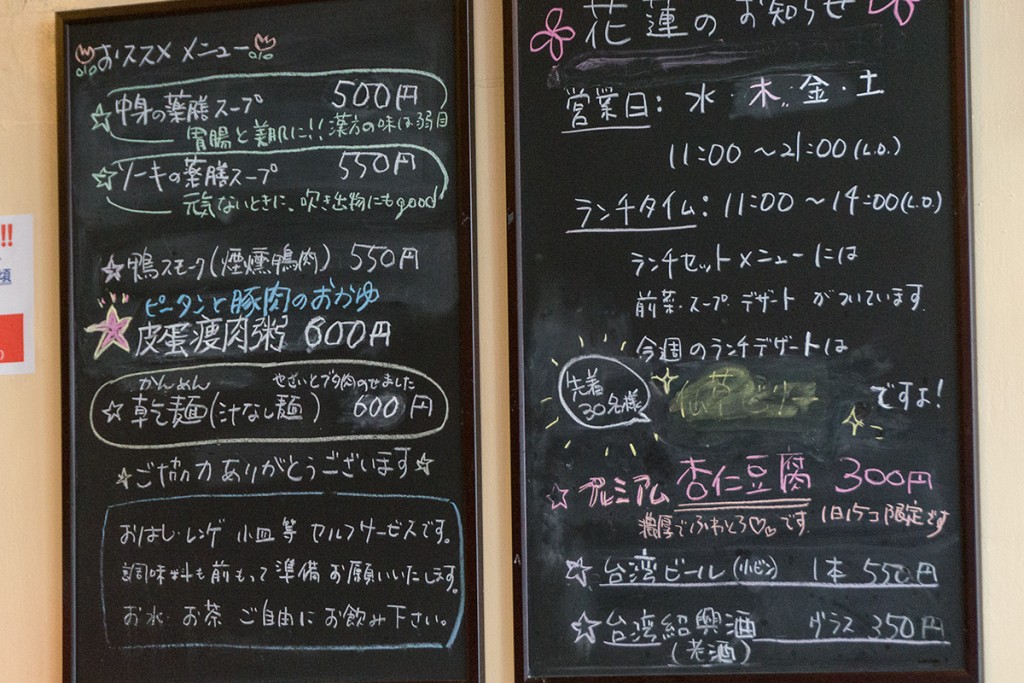 おススメメニュー
☆中身の薬膳スープ 500円
胃腸と美肌に!!漢方の味は弱目
☆ソーキの薬膳スープ 550円
元気ないときに、吹き出物にもgood
☆鴨スモーク(煙燻鴨肉) 550円
ピータンと豚肉のおかゆ
皮蛋瘦肉粥 600円
かんめん やさいとブタ肉のせました
☆乾麺(汁なし麺) 600円
☆ご協力ありがとうございます☆
おはし・レンゲ 小皿 等 セルフサービスです。
調味料も前もって準備お願いいたします。
お水・お茶 ご自由にお飲み下さい。
花蓮のお知らせ
営業日: 水 木・金・土
11:00~21:00(L.O.)
ランチタイム:11:00~14:00(L.O.)
ランチセットメニューには
前菜・スープ デザートがついています.
今週のランチデザートは
先着
30名様
仙草ゼリー ですよ!
☆プレミアム 杏仁豆腐 300円
濃厚でふわとろ♡です. 1日15コ限定です
☆台湾ビール(小ビン) 1本 550円
☆台湾紹興酒 グラス 350円
(老酒)
!!
頃